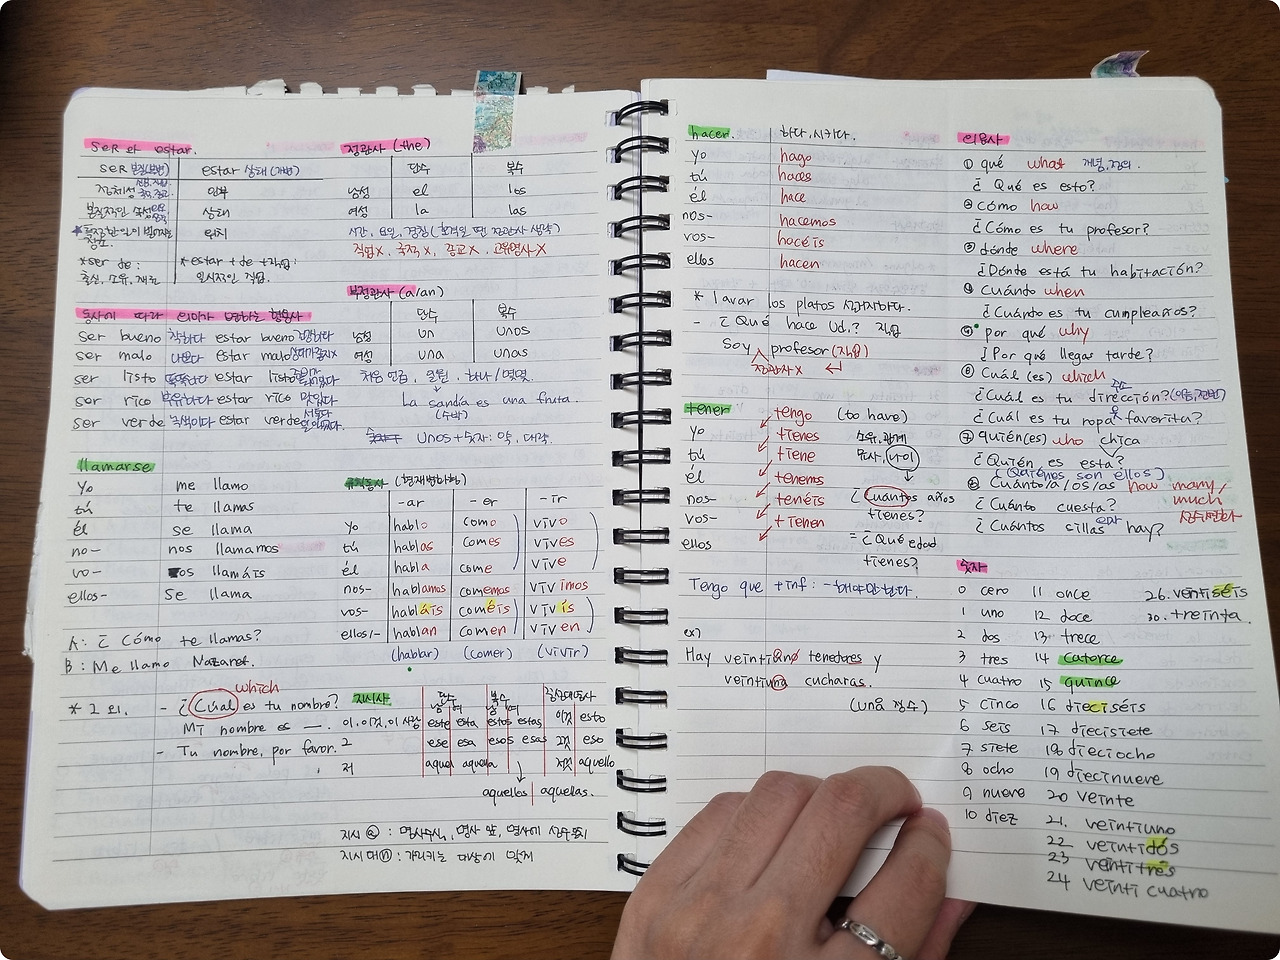 SER와 estar.
SER 본질(불변) estar 상태(가변)
정체성 안부
본질적인 특성 상태
위치
*ser de : *estar + de + 직업 :
출신, 소유, 재료 일시적인 직업.
동사에 따라 의미가 변하는 형용사
ser bueno 착하다 estar bueno
ser malo 나쁘다 estar malo
ser listo 똑똑하다 estar listo
ser rico 부유하다 estar rico 맛있다
ser verde 녹색이다 estar verde
llamarse
yo me llamo
tú te llamas
él se llama
no- nos llamamos
vo- os llamáis
ellos- se llama
A: ¿ Cómo te llamas?
B: Me llamo Nazaret.
which
* 그 외. - ¿Cuál es tu nombre?
Mi nombre es —.
- Tu nombre, por favor.
정관사 (the)
단수 복수
남성 el los
여성 la las
직업X, 국적X, 종교X, 고유명사X
부정관사 (a/an)
단수 복수
남성 un unos
여성 una unas
처음 언급, 하나/몇몇.
La sandía es una fruta.
(수박)
unos+숫자: 약, 대략
규칙동사 (현재변화형)
-ar -er -ir
yo hablo como vivo
tú hablas comes vives
él habla come vive
nos- hablamos comemos vivimos
vos- habláis coméis vivís
ellos- hablan comen viven
(hablar) (comer) (vivir)
지시사 단수 복수 중성대명사
남 여 남 여
이, 이것, 이 사람 este esta estos estas 이것 esto
그 ese esa esos esas 그것 eso
저 aquel aquella 저것 aquello
aquellos aquellas.
지시 ⓐ : 명사수식, 명사 앞, 명사에 성수일치
지시대ⓝ : 가리키는 대상에 맞게
hacer. 하다, 시키다.
yo hago
tú haces
él hace
nos- hacemos
vos- hacéis
ellos hacen
* lavar los platos 설거지하다.
- ¿Qué hace Ud.? 직업
Soy profesor (직업)
정관사X
tener tengo (to have)
yo tienes 소유, 관계
tú tiene 나이
él tenems
nos- tenéis ¿Cuántos años
vos- tienen tienes?
ellos = ¿Qué edad
tienes?
Tengo que +inf : ~해야만 한다.
ex)
Hay veintiuno tenedores y
veintiuna cucharas.
(una 정수)
의문사
① qué what 개념, 정의
¿ Qué es esto?
② cómo how
¿Cómo es tu profesor?
③ dónde where
¿Dónde está tu habitación?
④ Cuándo when
¿Cuándo es tu cumpleaños?
⑤ por qué why
¿Por qué llegas tarde?
⑥ Cuál (es) which
주소
¿Cuál es tu dirección?
옷
¿Cuál es tu ropa favorita?
⑦ quién(es) who chica
¿Quién es esta?
(Quiénes son ellos)
⑧ Cuánto/a/os/as how many/
much
¿ Cuánto cuesta?
의자
¿ Cuántos sillas hay?
숫자
0 cero 11 once 26. veintiséis
1 uno 12 doce 30. treinta.
2 dos 13 trece
3 tres 14 catorce
4 cuatro 15 quince
5 cinco 16 dieciséis
6 seis 17 diecisiete
7 siete 18 dieciocho
8 ocho 19 diecinueve
9 nueve 20 veinte
10 diez 21. veintiuno
22 veintidós
23 veintitrés
24 veinticuatro